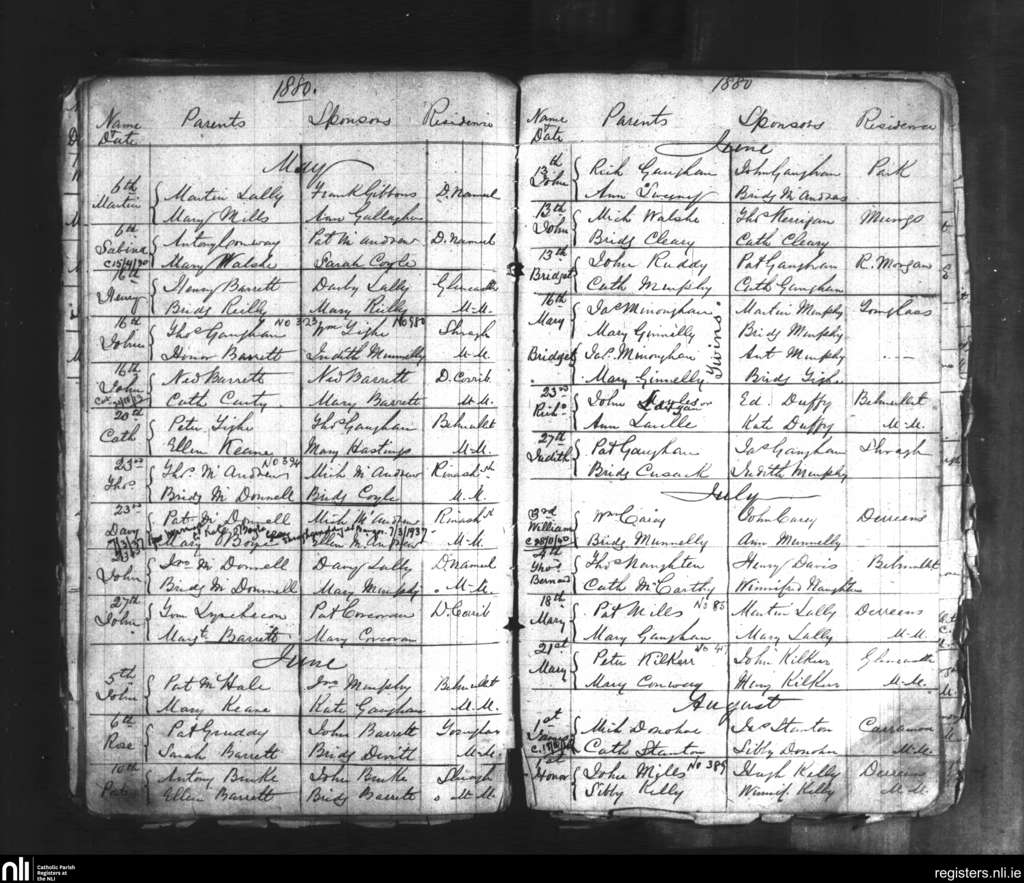 1880.
Name Parents Sponsors Residence
Dt
Date
May
6th Martin Lally Frank Gibbons D. Namel
Martin Mary Mills Ann Gallagher
6th Antony Conway Pat McAndrew D. Namel
Sabina Mary Walshe Sarah Coyle
c 15/4/
16th Henry Barrett Darby Lally Glencastle
Henry Bridg Reilly Mary Reilly M.M.
16th Thos Gaughan No 323 Wm Tighe No 980 Shragh
John Honor Barrett Judith Munnelly M.M.
16th Ned Barrett Ned Barrett D. Corrib
John Cath Canty Mary Barrett M.M.
20th Peter Tighe Thos Gaughan Belmullet
Cath Ellen Keane Mary Hastings M.M.
23rd Thos McAndrew No 394 Mich McAndrew Rinash
Thos Bridg McDonnell Bridg Coyle M.M.
23rd Pat McDonnell Mich McAndrew Rinash
Davy Ellen McAndrew M.M.
7/3/37
John Jno McDonnell Davy Lally D Namel
Bridg McDonnell Mary Murphy M.M.
27th Tom Lynchecon Pat Corcoran D. Corrib
John Margt Barrett Mary Corcoran
June
5th Pat McHale Jno Murphy Belmullet
John Mary Keane Kate Gaughan M.M.
6th Pat Gruddy John Barrett
Rose Sarah Barrett Bridg Devitt M.M.
10th Antony Burke John Burke Shragh
Ellen Barrett Bridg Barrett M.M.
1880
Name Parents Sponsors Residence
Dt
Date
June
13th Rich Gaughan John Gaughran Park
John Ann Sweeny Bridg McAndrew
13th Mich Walshe Thos Kerrigan Mungo
John Bridg Cleary Cath Cleary
13th John Ruddy Pat Gaughan R. Morgan
Bridget Cath Murphy Cath Gaughan
16th Jas Monaghan Martin Murphy
Mary Mary Ginnelly Bridg Murphy
Twins.
Bridget Jas. Monoghan Ant Murphy
Mary Ginnelly Bridg Tigh.
23rd John Ed. Duffy Belmullet
Richd Ann Lavelle Kate Duffy M.M.
27th Pat Gaughan Jas Gaughan Shragh
Judith Bridg Cusack Judith Murphy
July
3rd Wm Carey John Carey Derreens
William Bridg Munnelly Ann Munnelly
4th Thos Naughten Henry Davis Belmullet
Thos
Bernard Cath McCarthy Winnifrd Naughten
18th Pat Mills No 85 Martin Lally Derreens
Mary Mary Gaughan Mary Lally M.M.
21st Peter Kilker No 41 John Kilker Glencastle
Mary Mary Conway Henry Kilker M.M.
August
1st Mich Donohoe Jas Stanton
Cath Stanton Sibby Donohoe M.M.
1st John Mills No 389 Hugh Kelly Derreens
Honor Sibby Kelly Winnif Kelly M.M.
nli
Catholic Parish
Registers at
the NLI
registers.nli.ie